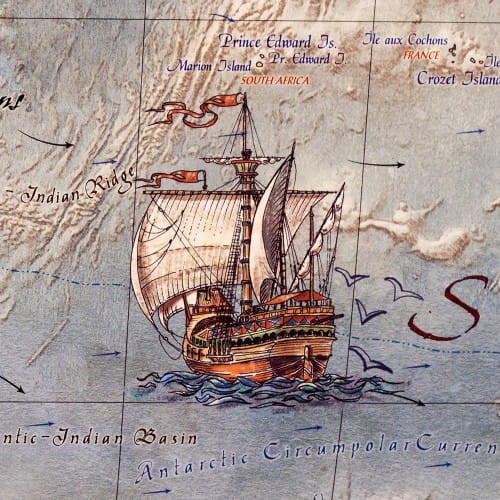 Prince Edward Is.
Marion Island
Pr. Edward I.
SOUTH AFRICA
Île aux Cochons
FRANCE
Crozet Island
Indian Ridge
S
ntic-Indian Basin
Antarctic Circumpolar Curren